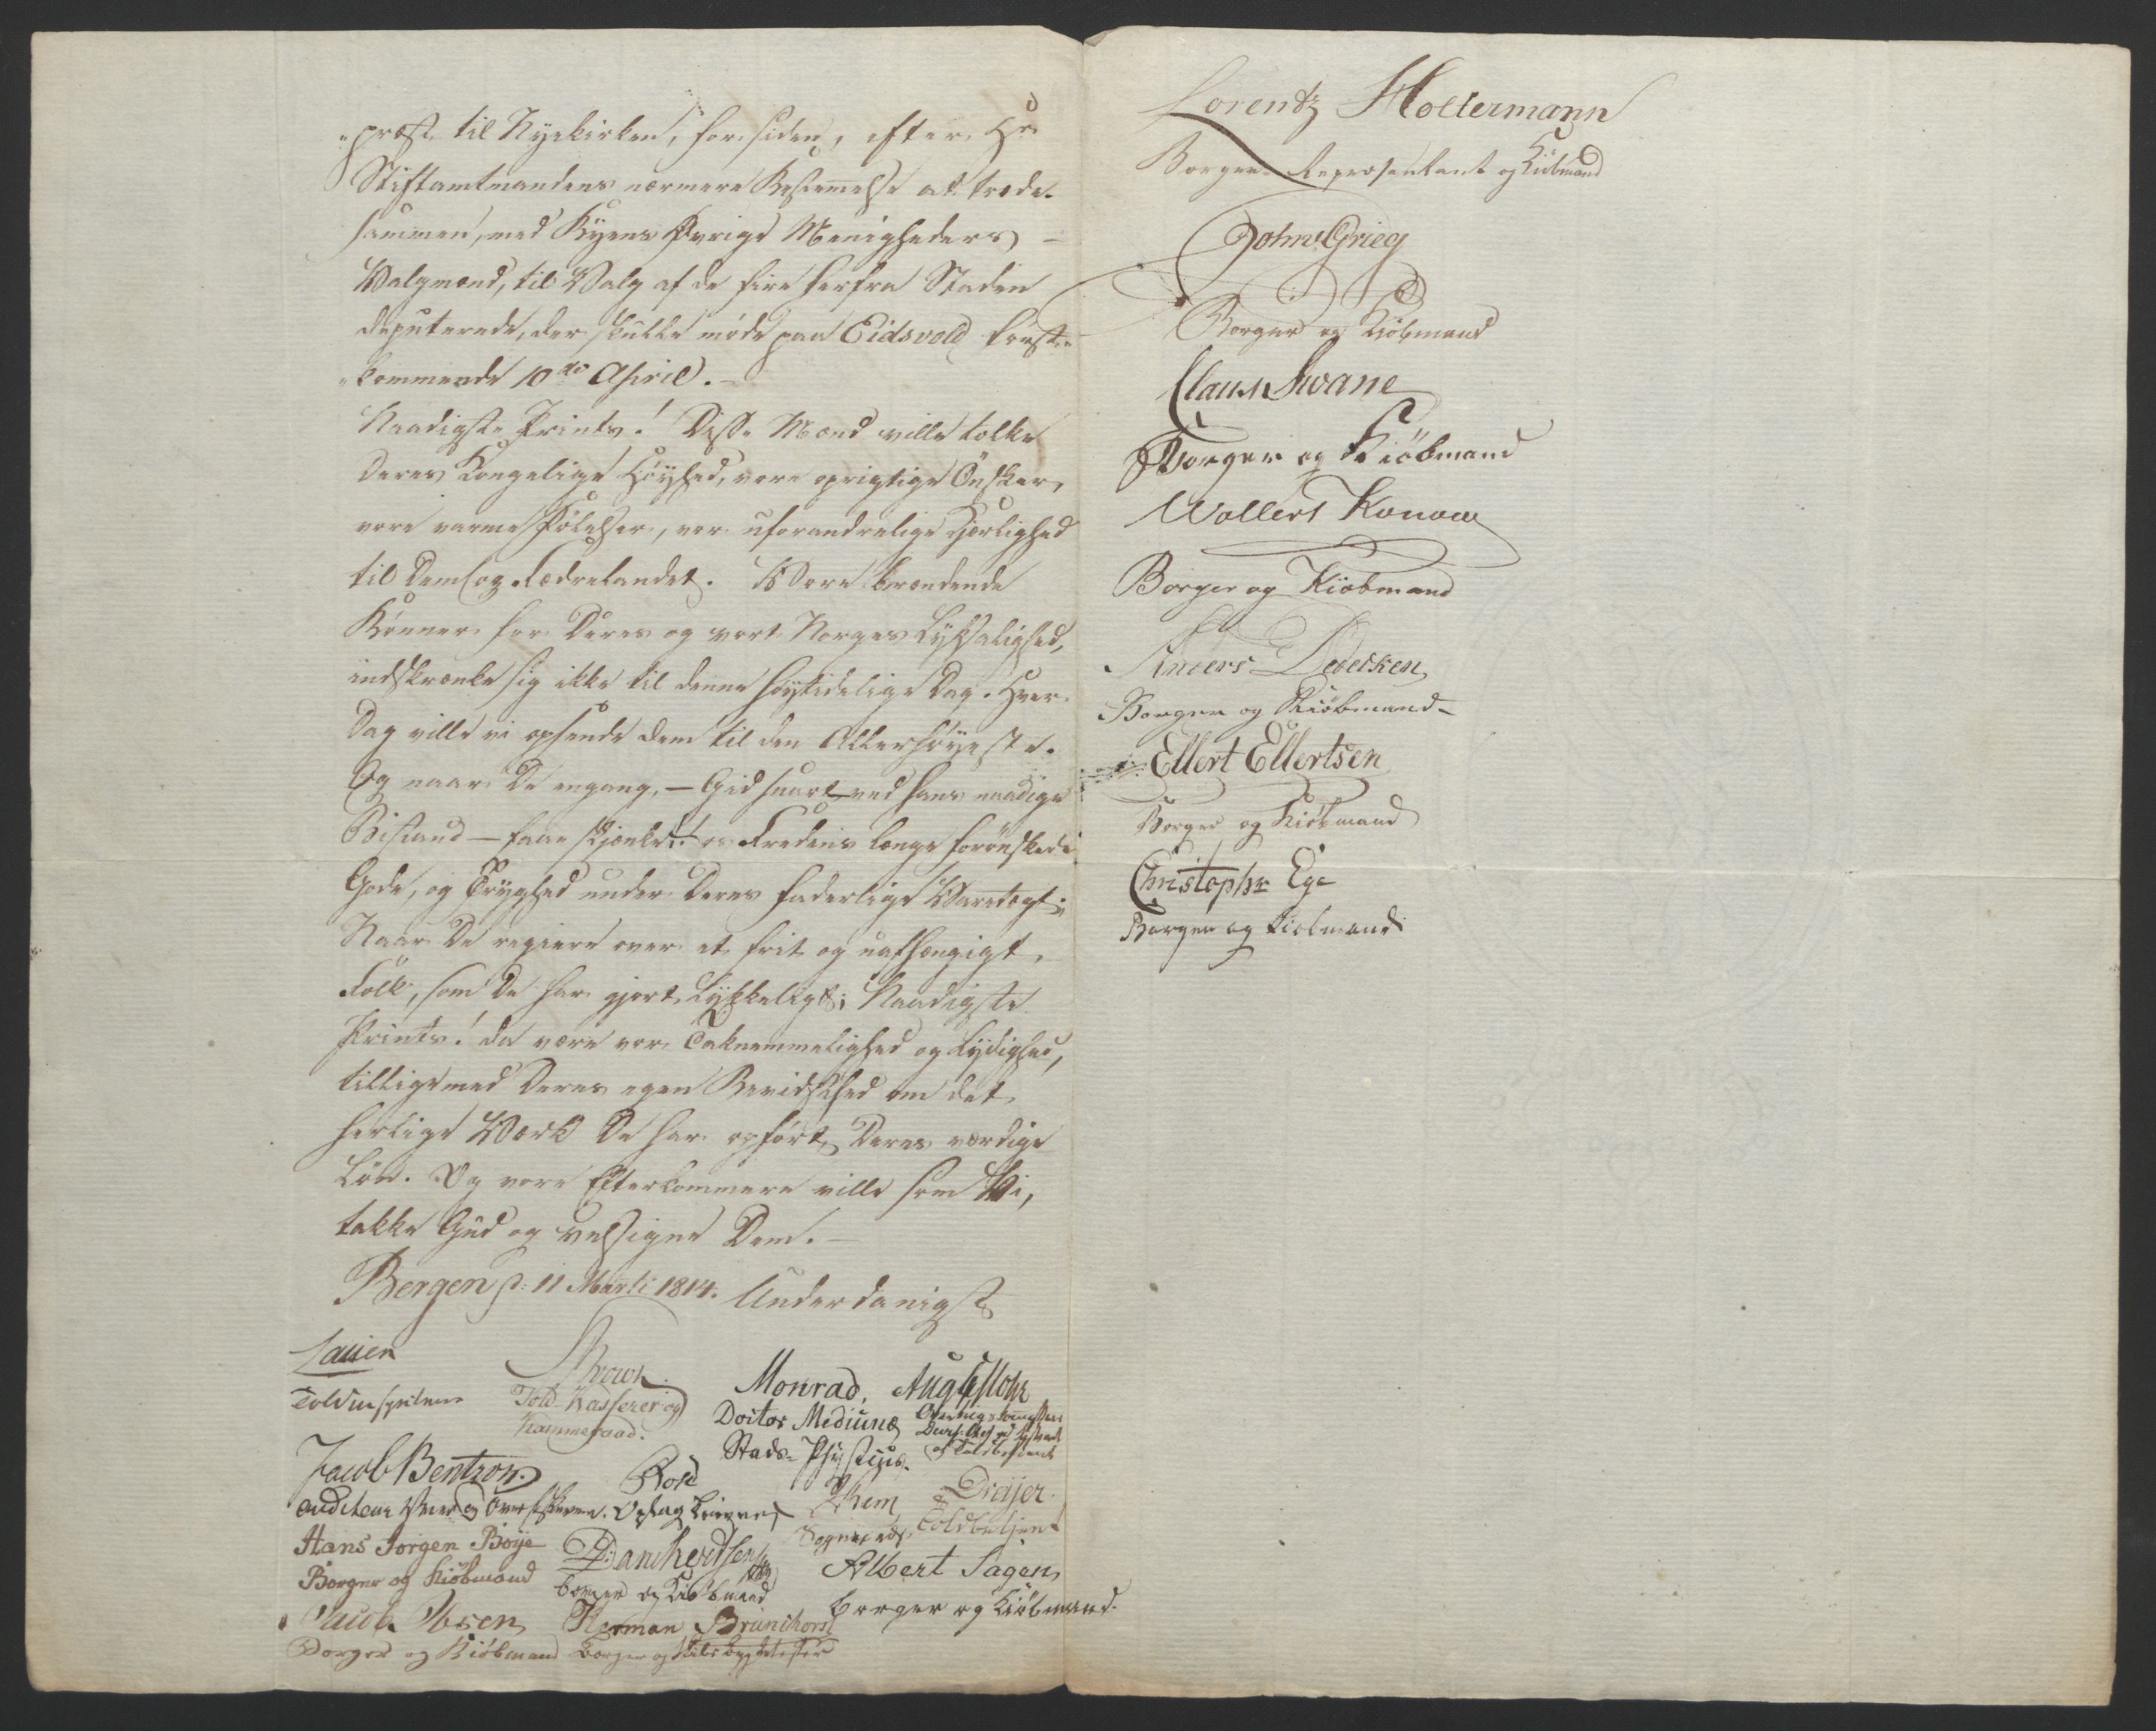 "præst til Nyekirken, for siden, efter Hr
Stiftamtmandens nærmere Bestemmelse at træde
sammen, med Byens øvrige Menigheders
Valgmænd, til Valg af de fire herfra Staden
deputerede, der skulle møde paa Eidsvold først-
"kommende 10de April.
Naadigste Prints! Disse Mænd ville tolke
Deres Kongelige Høyhed, vore oprigtige Önsker,
vore varme Følelser, vor uforandrelige Kjærlighed
til Dem og Fædrelandet. Vore brændende
Bønner for Deres og vort Norges Lyksalighed,
indskrænke sig ikke til denne høytidelige Dag. Hver
Dag ville vi opsende dem til den Allerhøyeste.
Og naar De engang, — Gid snart ved hans naadige
Bistand — faaer skjenket os Fredens længe forönskede
Gode, og Tryghed under Deres faderlige Varetægt;
Naar De regiere over et frit og uafhængigt
Folk, som De har gjort lykkeligt; Naadigste
Prints! da være vor Taknemmelighed og Lydighed,
tilligemed Deres egen Bevidsthed om det
herlige Værk De har opført, Deres værdige
Løn. Og vore Efterkommere ville som Vi,
takke Gud og velsigne Dem.
Bergen d: 11 Martii 1814. Underdanigst
Toldinspecteur
Told-Kasserer og
Kammeraad.
Monrad, Aug
Doctor Medicinæ
Stads-Physicus.
Jacob Bentzon
Hans Jorgen Böije
Borger og Kiöbmand
Danckertsen
borger og Kiöbmand
Sognepræst
Dreijer
Toldbetjent
Albert Sagen
borger og Kiöbmand.
Jacob Ibsen
Borger og Kiöbmand
Herman Brunchorst
Borger og Skibsbygmester
Lorentz Holtermann
Borger-Repræsentant og Kiöbmand
John Grieg
Borger og Kiöbmand
Claus Swane
Borger og Kiöbmand
Wollert Konow
Borger og Kiöbmand
Anders Dedecken
Borger og Kiöbmand-
Ellert Ellertsen
Borger og Kiöbmand
Christopher Ege
Borger og Kiöbmand